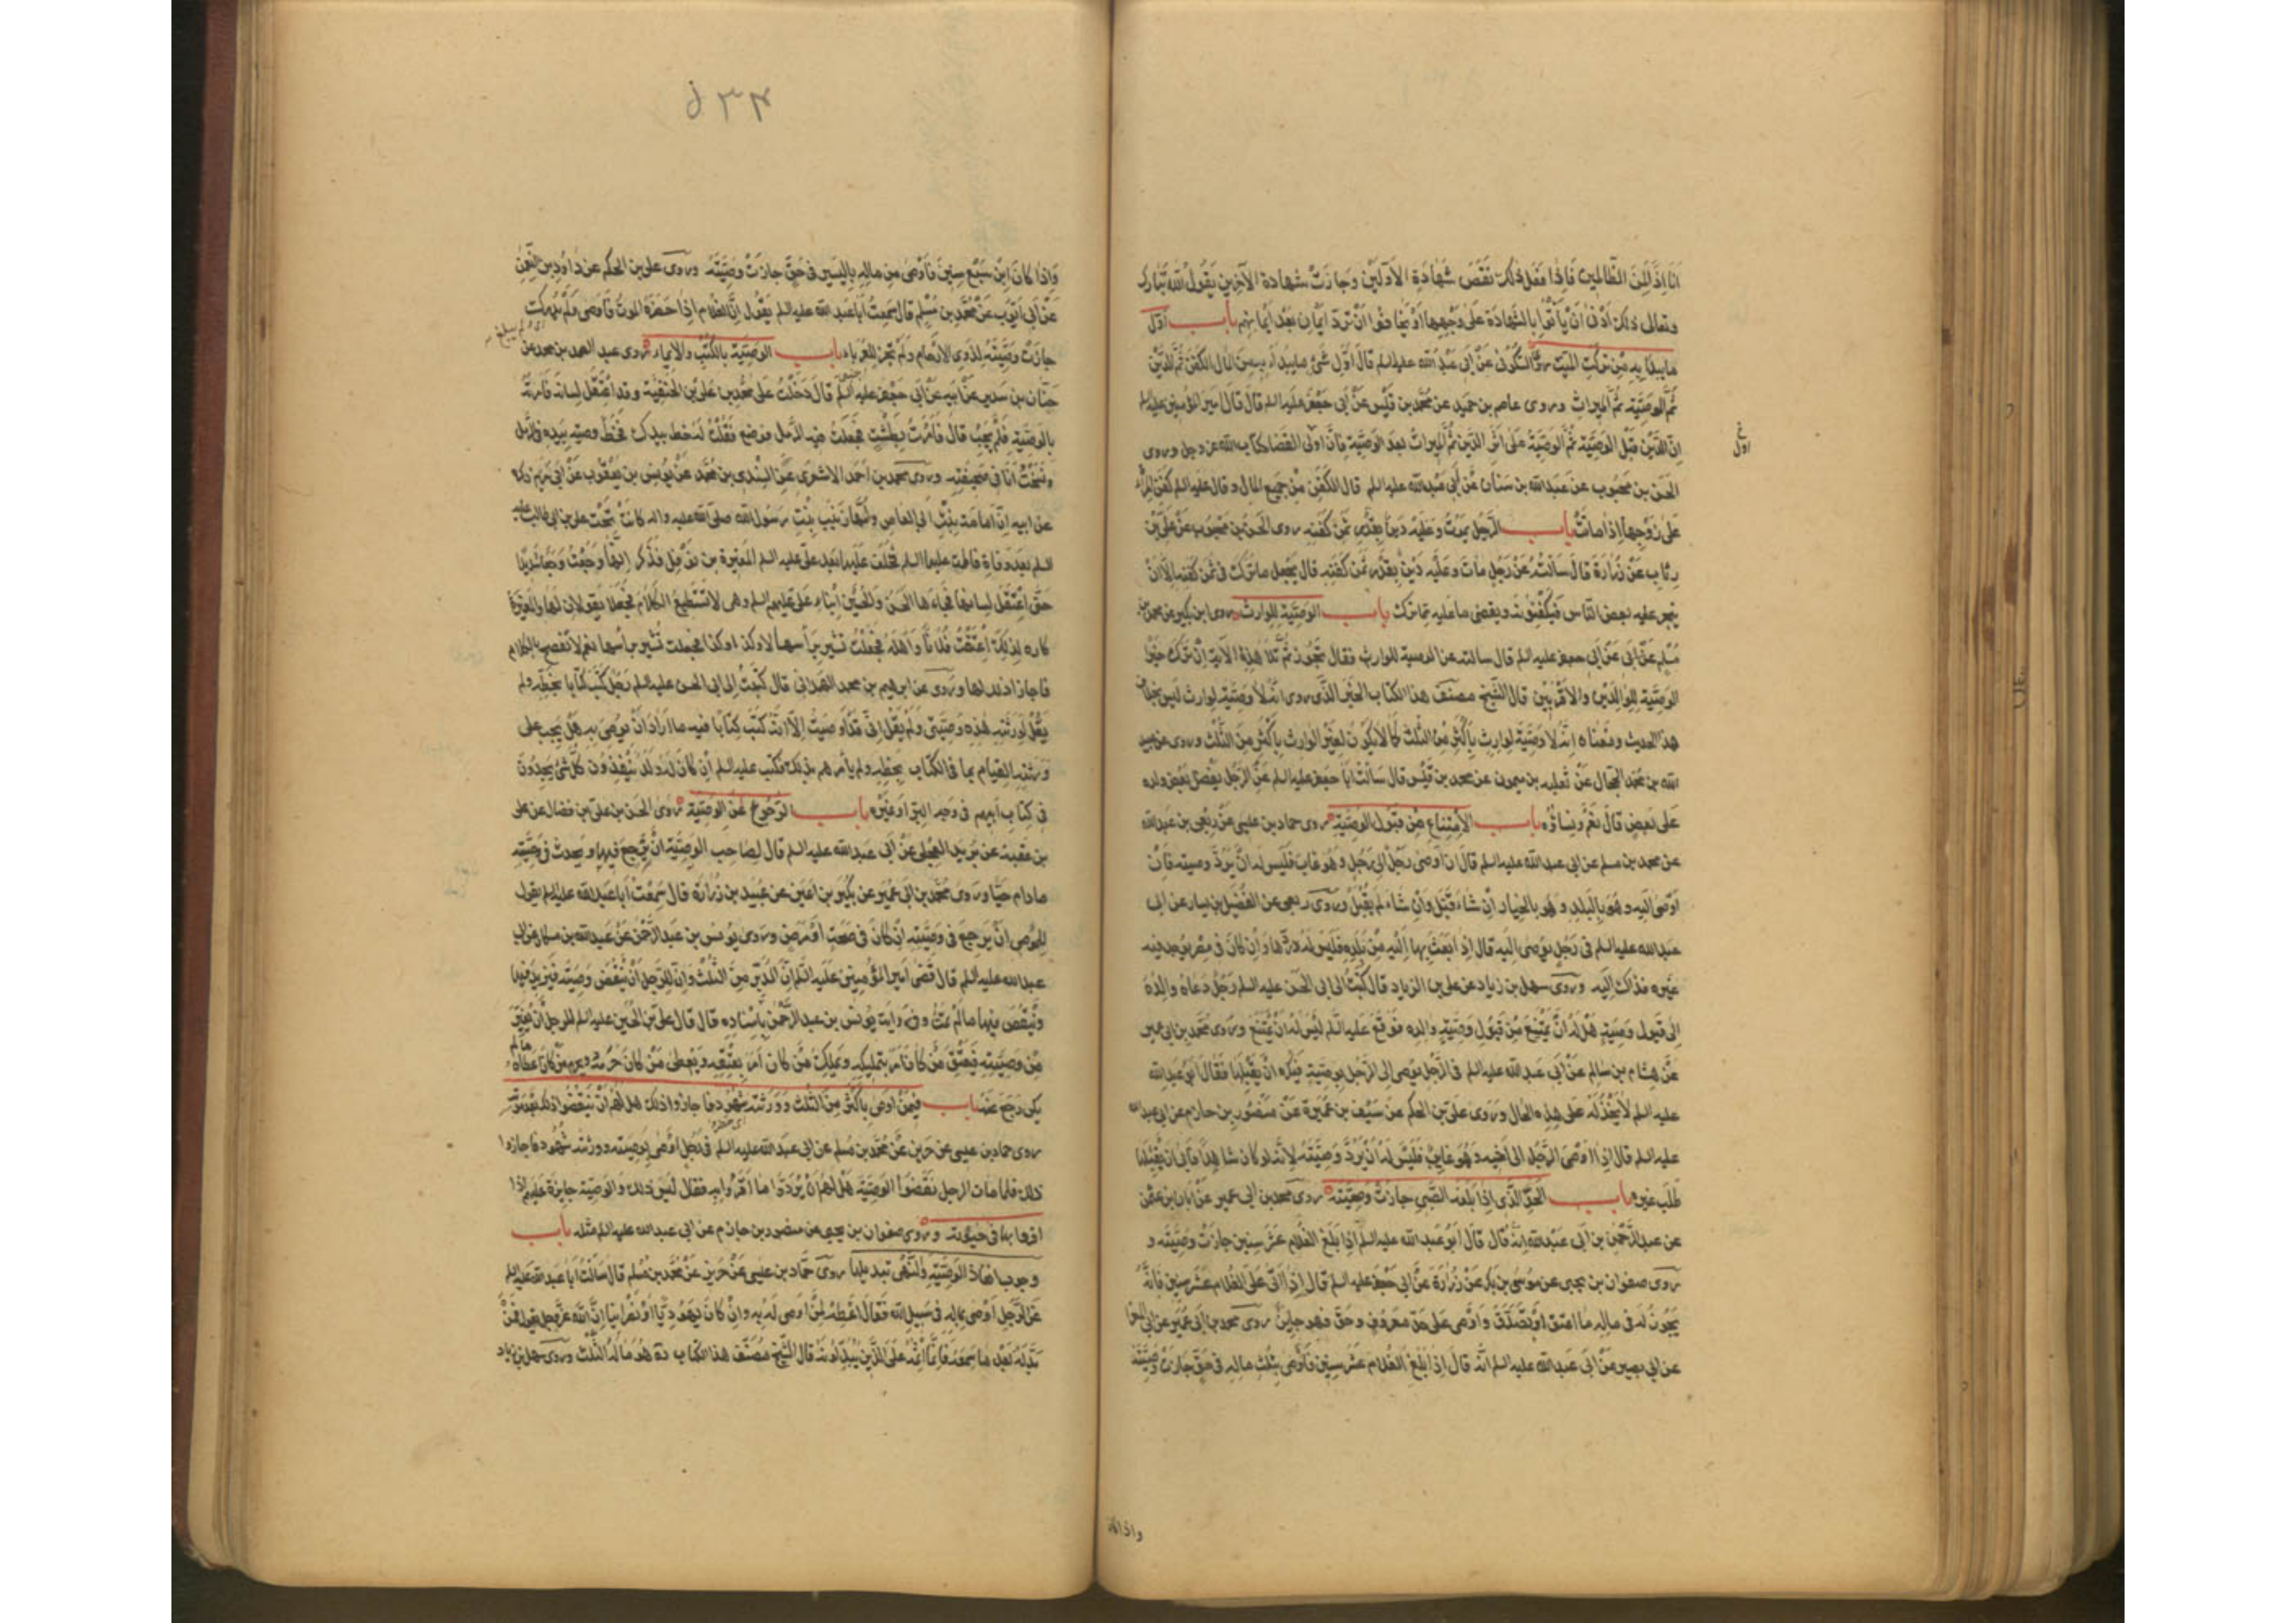 انا اذا لمن الظالمين فاذا فعل ذلك نقض شهادة الاولين وجازت شهادة الآخرين يقول الله تبارك
وتعالى ذلك ادنى ان يأتوا بالشهادة على وجهها او يخافوا ان ترد ايمان بعد ايمانهم باب اول
ما يبدأ به من تركة الميت روى السكونى عن ابى عبد الله عليه السلم قال اول شئ مايبدأ به من المال الكفن ثم الدين
ثم الوصية ثم الميراث وروى عاصم بن حميد عن محمد بن قيس عن ابى جعفر عليه السلم قال قال امير المؤمنين عليه السلم
ان الدين قبل الوصية ثم الوصية على اثر الدين ثم الميراث بعد الوصية فان اولى القضا كتاب الله عز وجل وروى
اول خ
الحسن بن محبوب عن عبد الله بن سنان عن ابى عبد الله عليه السلم قال الكفن من جميع المال وقال عليه السلم كفن المرأة
على زوجها اذا ماتت باب الرجل يموت وعليه دين بقدر ثمن كفنه روى الحسن بن محبوب عن على بن
رئاب عن زرارة قال سالته عن رجل مات وعليه دين بقدر ثمن كفنه قال يجعل ما ترك فى ثمن كفنه الا ان
يتجر عليه بعض الناس فيكفنونه ويقضى ما عليه مما ترك باب الوصية للوارث روى ابن بكير عن محمد بن
مسلم عن ابى جعفر عليه السلم قال سالته عن الوصية للوارث فقال تجوز ثم تلا هذه الآية ان ترك خيرا
الوصية للوالدين والاقربين قال الشيخ مصنف هذا الكتاب الخبر الذى روى انه لا وصية لوارث ليس بخلاف
هذا الحديث ومعناه انه لا وصية لوارث باكثر من الثلث كما لا يكون لغير الوارث باكثر من الثلث وروى عن عبد
الله بن محمد الحجال عن ثعلبه بن ميمون عن محمد بن قيس قال سالت ابا جعفر عليه السلم عن الرجل يفضل بعض ولده
على بعض قال نعم ونساؤه باب الامتناع من قبول الوصية روى حماد بن عيسى عن ربعى بن عبد الله
عن محمد بن مسلم عن ابى عبد الله عليه السلم قال ان اوصى رجل الى رجل وهو غايب فليس له ان يرد وصيته فان
اوصى اليه وهو بالبلد وهو بالخيار ان شاء قبل وان شاء لم يقبل وروى ربعى عن الفضيل بن يسار عن ابى
عبد الله عليه السلم فى رجل يوصى اليه قال اذا بعث بها اليه من بلد فليس له ردها وان كان فى مصر يوجد فيه
غيره فذاك اليه وروى سهل بن زياد عن على بن الريان قال كتبت الى ابى الحسن عليه السلم رجل دعاه والده
الى قبول وصيته هل له ان يمتنع من قبول وصية والده فوقع عليه السلم ليس له ان يمتنع وروى محمد بن ابى عمير
عن هشام بن سالم عن ابى عبد الله عليه السلم فى الرجل يوصى الى الرجل بوصيته فيكره ان يقبلها فقال ابو عبد الله
عليه السلم لا يخذله على هذه الحال وروى على بن الحكم عن سيف بن عميرة عن منصور بن حازم عن ابى عبد الله
عليه السلم قال اذا اوصى الرجل الى اخيه وهو غايب فليس له ان يرد وصيته لانه لو كان شاهدا فابى ان يقبلها
طلب غيره باب الحد الذى اذا بلغه الصبى جازت وصيته روى محمد بن ابى عمير عن ابان بن عثمن
عن عبد الرحمن بن ابى عبد الله انه قال قال ابو عبد الله عليه السلم اذا بلغ الغلام عشر سنين جازت وصيته و
روى صفوان بن يحيى عن موسى بن بكر عن زرارة عن ابى جعفر عليه السلم قال اذا اتى على الغلام عشر سنين فانه
يجوز له فى ماله ما اعتق او تصدق واوصى على حد معروف وحق فهو جايز روى محمد بن ابى عمير عن ابى المغرا
عن ابى بصير عن ابى عبد الله عليه السلم انه قال اذا بلغ الغلام عشر سنين فاوصى بثلث ماله فى حق جازت وصيته
واذا كان
واذا كان ابن سبع سنين فاوصى من ماله باليسير فى حق جازت وصيته وروى على بن الحكم عن داود بن النعمن
عن ابى ايوب عن محمد بن مسلم قال سمعت ابا عبد الله عليه السلم يقول ان الغلام اذا حضره الموت فاوصى ولم يدرك
جازت وصيته لذوى الارحام ولم تجز للغرباء باب الوصية بالكتب والايماء روى عبد الصمد بن محمد عن
حنان بن سدير عن ابيه عن ابى جعفر عليه السلم قال دخلت على محمد بن على بن الحنفية وقد اعتقل لسانه فامرته
بالوصية فلم يجب قال فامرت بطشت فجعلت فيه الرمل فوضع فقلت له خط بيدك فخط وصيته بيده فى الرمل
ونسخت انا فى صحيفة وروى محمد بن احمد الاشعرى عن السندى بن محمد عن يونس بن يعقوب عن ابى مريم ذكره
عن ابيه ان امامة بنت ابى العاص وامها زينب بنت رسول الله صلى الله عليه واله كانت تحت على بن ابى طالب عليه
السلم بعد وفاة فاطمة عليها السلم فخلف عليها بعد على عليه السلم المغيرة بن نوفل فذكر انها وجعت وجعا شديدا
حتى اعتقل لسانها فجاءها الحسن والحسين ابناء على عليهم السلم وهى لا تستطيع الكلام فجعلا يقولان لها والمغيرة
كاره لذلك اعتقت فلانا واهله فجعلت تشير برأسها لا وكذا وكذا فجعلت تشير برأسها نعم لا تفصح بالكلام
فاجازا ذلك لها وروى عن ابرهيم بن محمد الهمدانى قال كتبت الى ابى الحسن عليه السلم رجل كتب كتابا بخطه ولم
يقل لورثته هذه وصيتى ولم يقل انى قد اوصيت الا انه كتب كتابا فيه ما اراد ان يوصى به هل يجب على
ورثته القيام بما فى الكتاب بخطه ولم يأمرهم بذلك فكتب عليه السلم ان كان له ولد ينفذون كل شئ يجدون
فى كتاب ابيهم فى وجه البر او غيره باب الرجوع عن الوصية روى الحسن بن على بن فضال عن على
بن عقبة عن بريد العجلى عن ابى عبد الله عليه السلم قال لصاحب الوصية ان يرجع فيها ويحدث فى وصيته
مادام حيا وروى محمد بن ابى عمير عن بكير بن اعين عن عبيد بن زرارة قال سمعت ابا عبد الله عليه السلم يقول
للموصى ان يرجع فى وصيته ان كان فى صحة او مرض وروى يونس بن عبد الرحمن عن عبد الله بن مسكان عن ابى
عبد الله عليه السلم قال قضى امير المؤمنين عليه السلم ان المدبر من الثلث وان للرجل ان ينقض وصيته فيزيد فيها
وينقص منها ما لم يمت وفى رواية يونس بن عبد الرحمن باسناده قال قال على بن الحسين عليه السلم للرجل ان يغير
من وصيته فيعتق من كان امر بتمليكه ويملك من كان امر بعتقه ويعطى من كان حرمه ويحرم من كان اعطاه مالم
يكن رجع عنه باب فيمن اوصى باكثر من الثلث وورثته شهود فاجازوا ذلك هل لهم ان ينقضوا ذلك بعد موته
روى حماد بن عيسى عن حريز عن محمد بن مسلم عن ابى عبد الله عليه السلم فى رجل اوصى بوصيته وورثته شهود فاجازوا
ذلك فلما مات الرجل نقضوا الوصية هل لهم ان يردوا ما اقروا به فقال ليس ذلك والوصية جايزة عليهم اذا
اقروا بها فى حيوته وروى صفوان بن يحيى عن منصور بن حازم عن ابى عبد الله عليه السلم مثله باب
وجوب انفاذ الوصية والنهى عن تبديلها روى حماد بن عيسى عن حريز عن محمد بن مسلم قال سالت ابا عبد الله عليه السلم
عن الرجل اوصى بماله فى سبيل الله فقال اعطه لمن اوصى له به وان كان يهوديا او نصرانيا ان الله عز وجل يقول فمن
بدله بعد ما سمعه فانما اثمه على الذين يبدلونه قال الشيخ مصنف هذا الكتاب ره هو ماله الثلث وروى سهل بن زياد